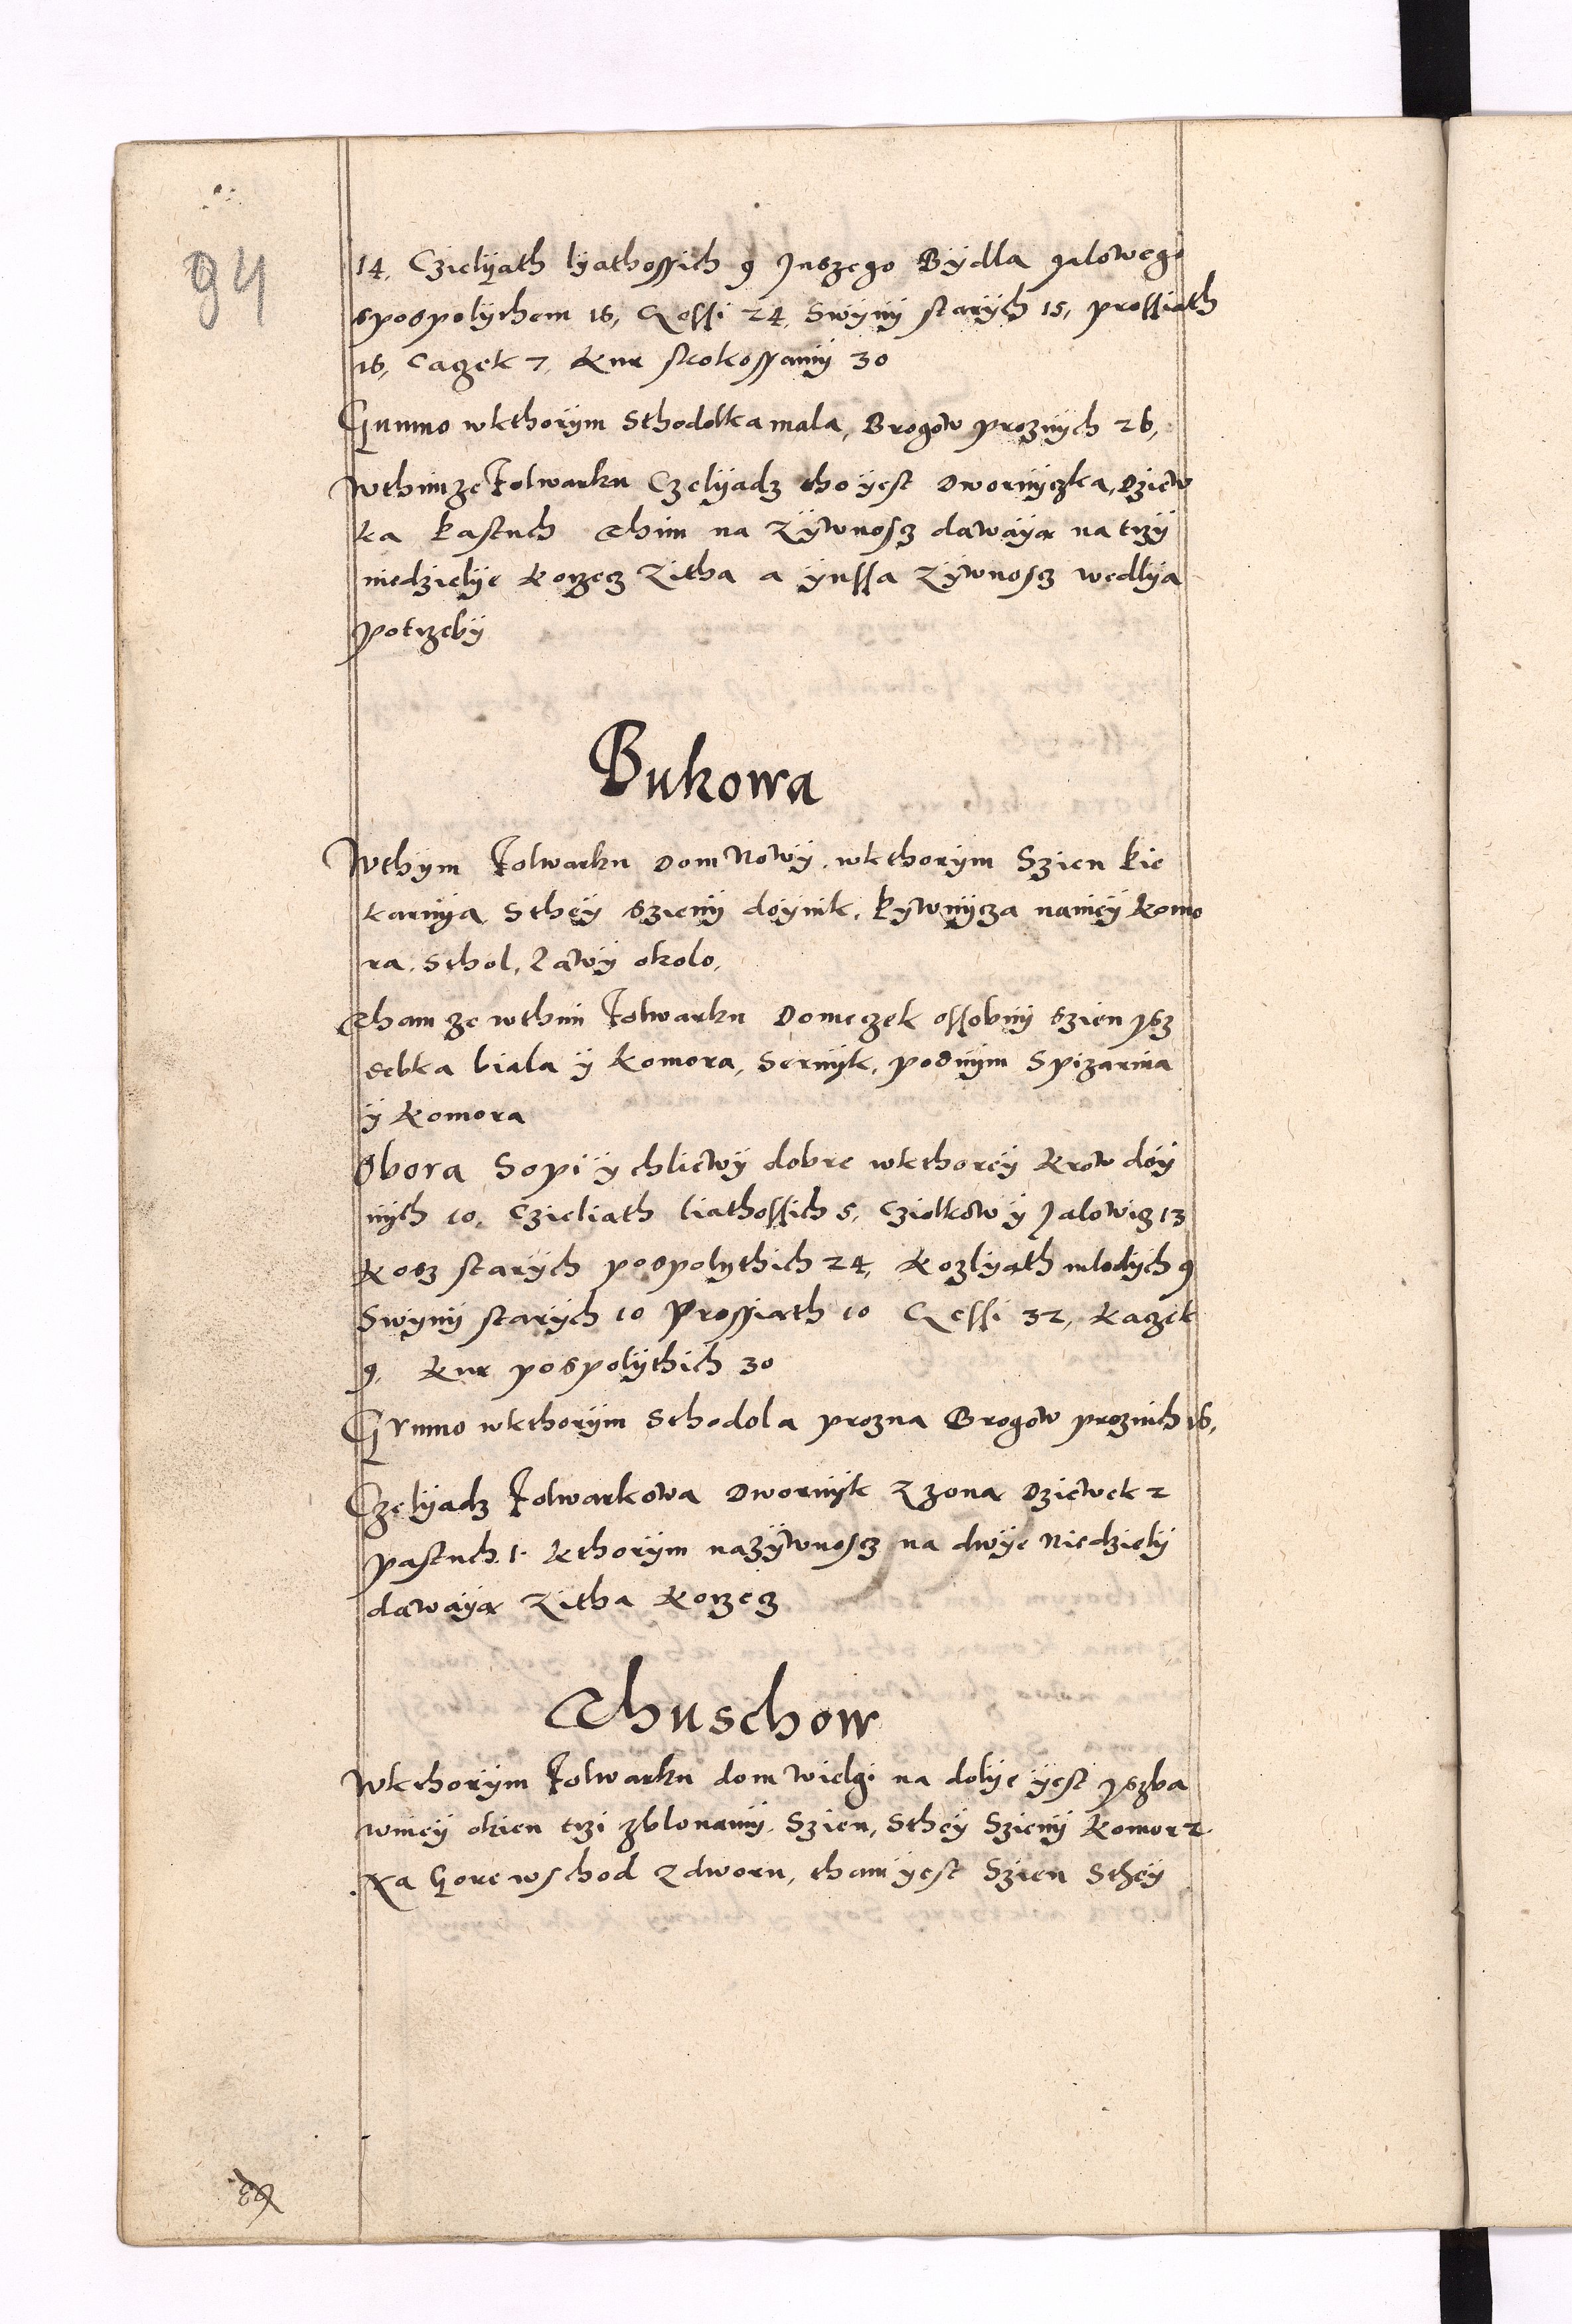 94
14, Czielyath lyathossich 9 Jnszego Bydla Jalowego
spospolychem 16, Gessi 24, Swyny starych 15, prossiath
16, Cagek 7, Kur skokossamy 30
Gumno wkthorym Sthodolka mala, Brogow proznych 26,
Wthimze Folwarku Czelyadz tho yest Dwornyczka, Dziew
ka Pastuch Thim na Zywnosz dawaya na trzy
niedzielye Korzecz Zitha a ynssa Zywnosz wedlya
potrzeby
Bukowa
Wthym Folwarku Dom Nowy, wkthorym Szien Pie
karnya, Sthey szieny doynik, Pywnycza naniey Komo
ra, Sthol, Lawy okolo,
Thamze wthim Folwarku Domeczek ossobny szien ysz
debka biala y Komora, Sernyk, podnym Spizarnia
y Komora
Obora Sopi y chliewy dobre wkthorey Krow doy
nych 10, Czieliath liathossich 5, Cziolkow y Jalowicz 13
Kosz starych pospolythich 24, Kozlyath mlodych 9
Swyny starych 10 Prossiath 10 Gessi 32, Kagek
9, Kur pospolythich 30
Gumno wkthorym Sthodola prozna Brogow proznich 16,
Czelyadz Folwarkowa Dwornyk Z zona Dziewek 2
pastuch 1. Kthorym nazywnosz na dwye Niedziely
dawaya Zitha Korzecz
Thuschow
Wkthorym Folwarku dom wielgi na dolye yest yszba
wniey okien trzi zblonamy, Szien, Sthey Szieny Komor 2
Na Gore wschod Zdworu, tham yest Szien Sthey